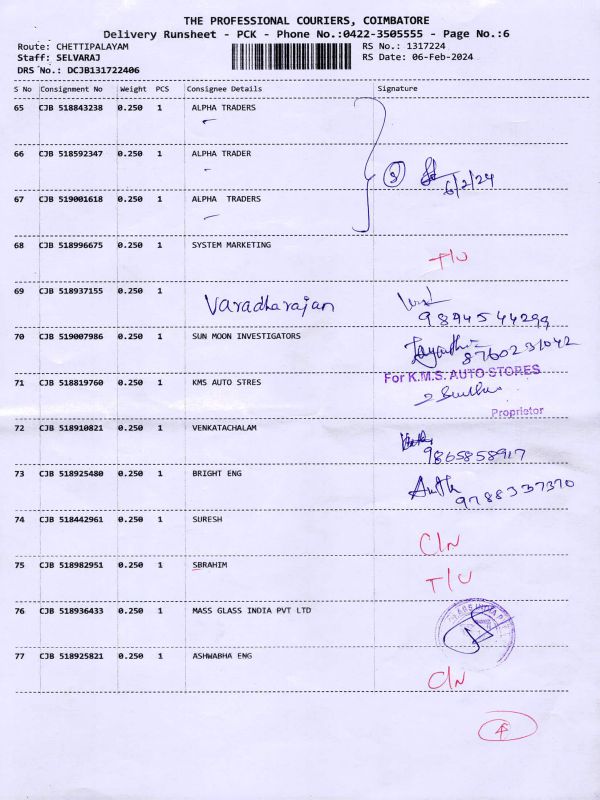 THE PROFESSIONAL COURIERS, COIMBATORE
Delivery Runsheet - PCK - Phone No.:0422-3505555 - Page No.:6
Route: CHETTIPALAYAM RS No.: 1317224
Staff: SELVARAJ RS Date: 06-Feb-2024
DRS No.: DCJB131722406
S No Consignment No Weight PCS Consignee Details Signature
65 CJB 518843238 0.250 1 ALPHA TRADERS
66 CJB 518592347 0.250 1 ALPHA TRADER
3 6/2/24
67 CJB 519001618 0.250 1 ALPHA TRADERS
68 CJB 518996675 0.250 1 SYSTEM MARKETING
T/U
69 CJB 518937155 0.250 1
Varadharajan
9894544299
70 CJB 519007986 0.250 1 SUN MOON INVESTIGATORS
8760231042
For K.M.S. AUTO STORES
71 CJB 518819760 0.250 1 KMS AUTO STRES
Proprietor
72 CJB 518910821 0.250 1 VENKATACHALAM
9865858917
73 CJB 518925480 0.250 1 BRIGHT ENG
9788337370
74 CJB 518442961 0.250 1 SURESH
C/N
75 CJB 518982951 0.250 1 SBRAHIM
T/U
76 CJB 518936433 0.250 1 MASS GLASS INDIA PVT LTD
77 CJB 518925821 0.250 1 ASHWABHA ENG
C/N